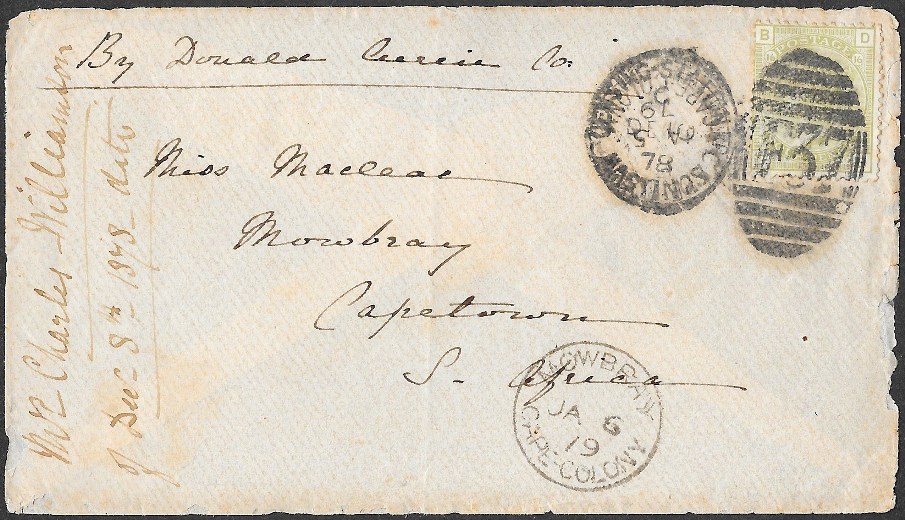 By Donald Currie Co.
Miss Maclear
Mowbray
Capetown
S. Africa
Mr Charles Williamson
of Decr 8th 1878 date
B D
POSTAGE
16
37
78
MOWBRAY
JA 6
79
CAPE-COLONY